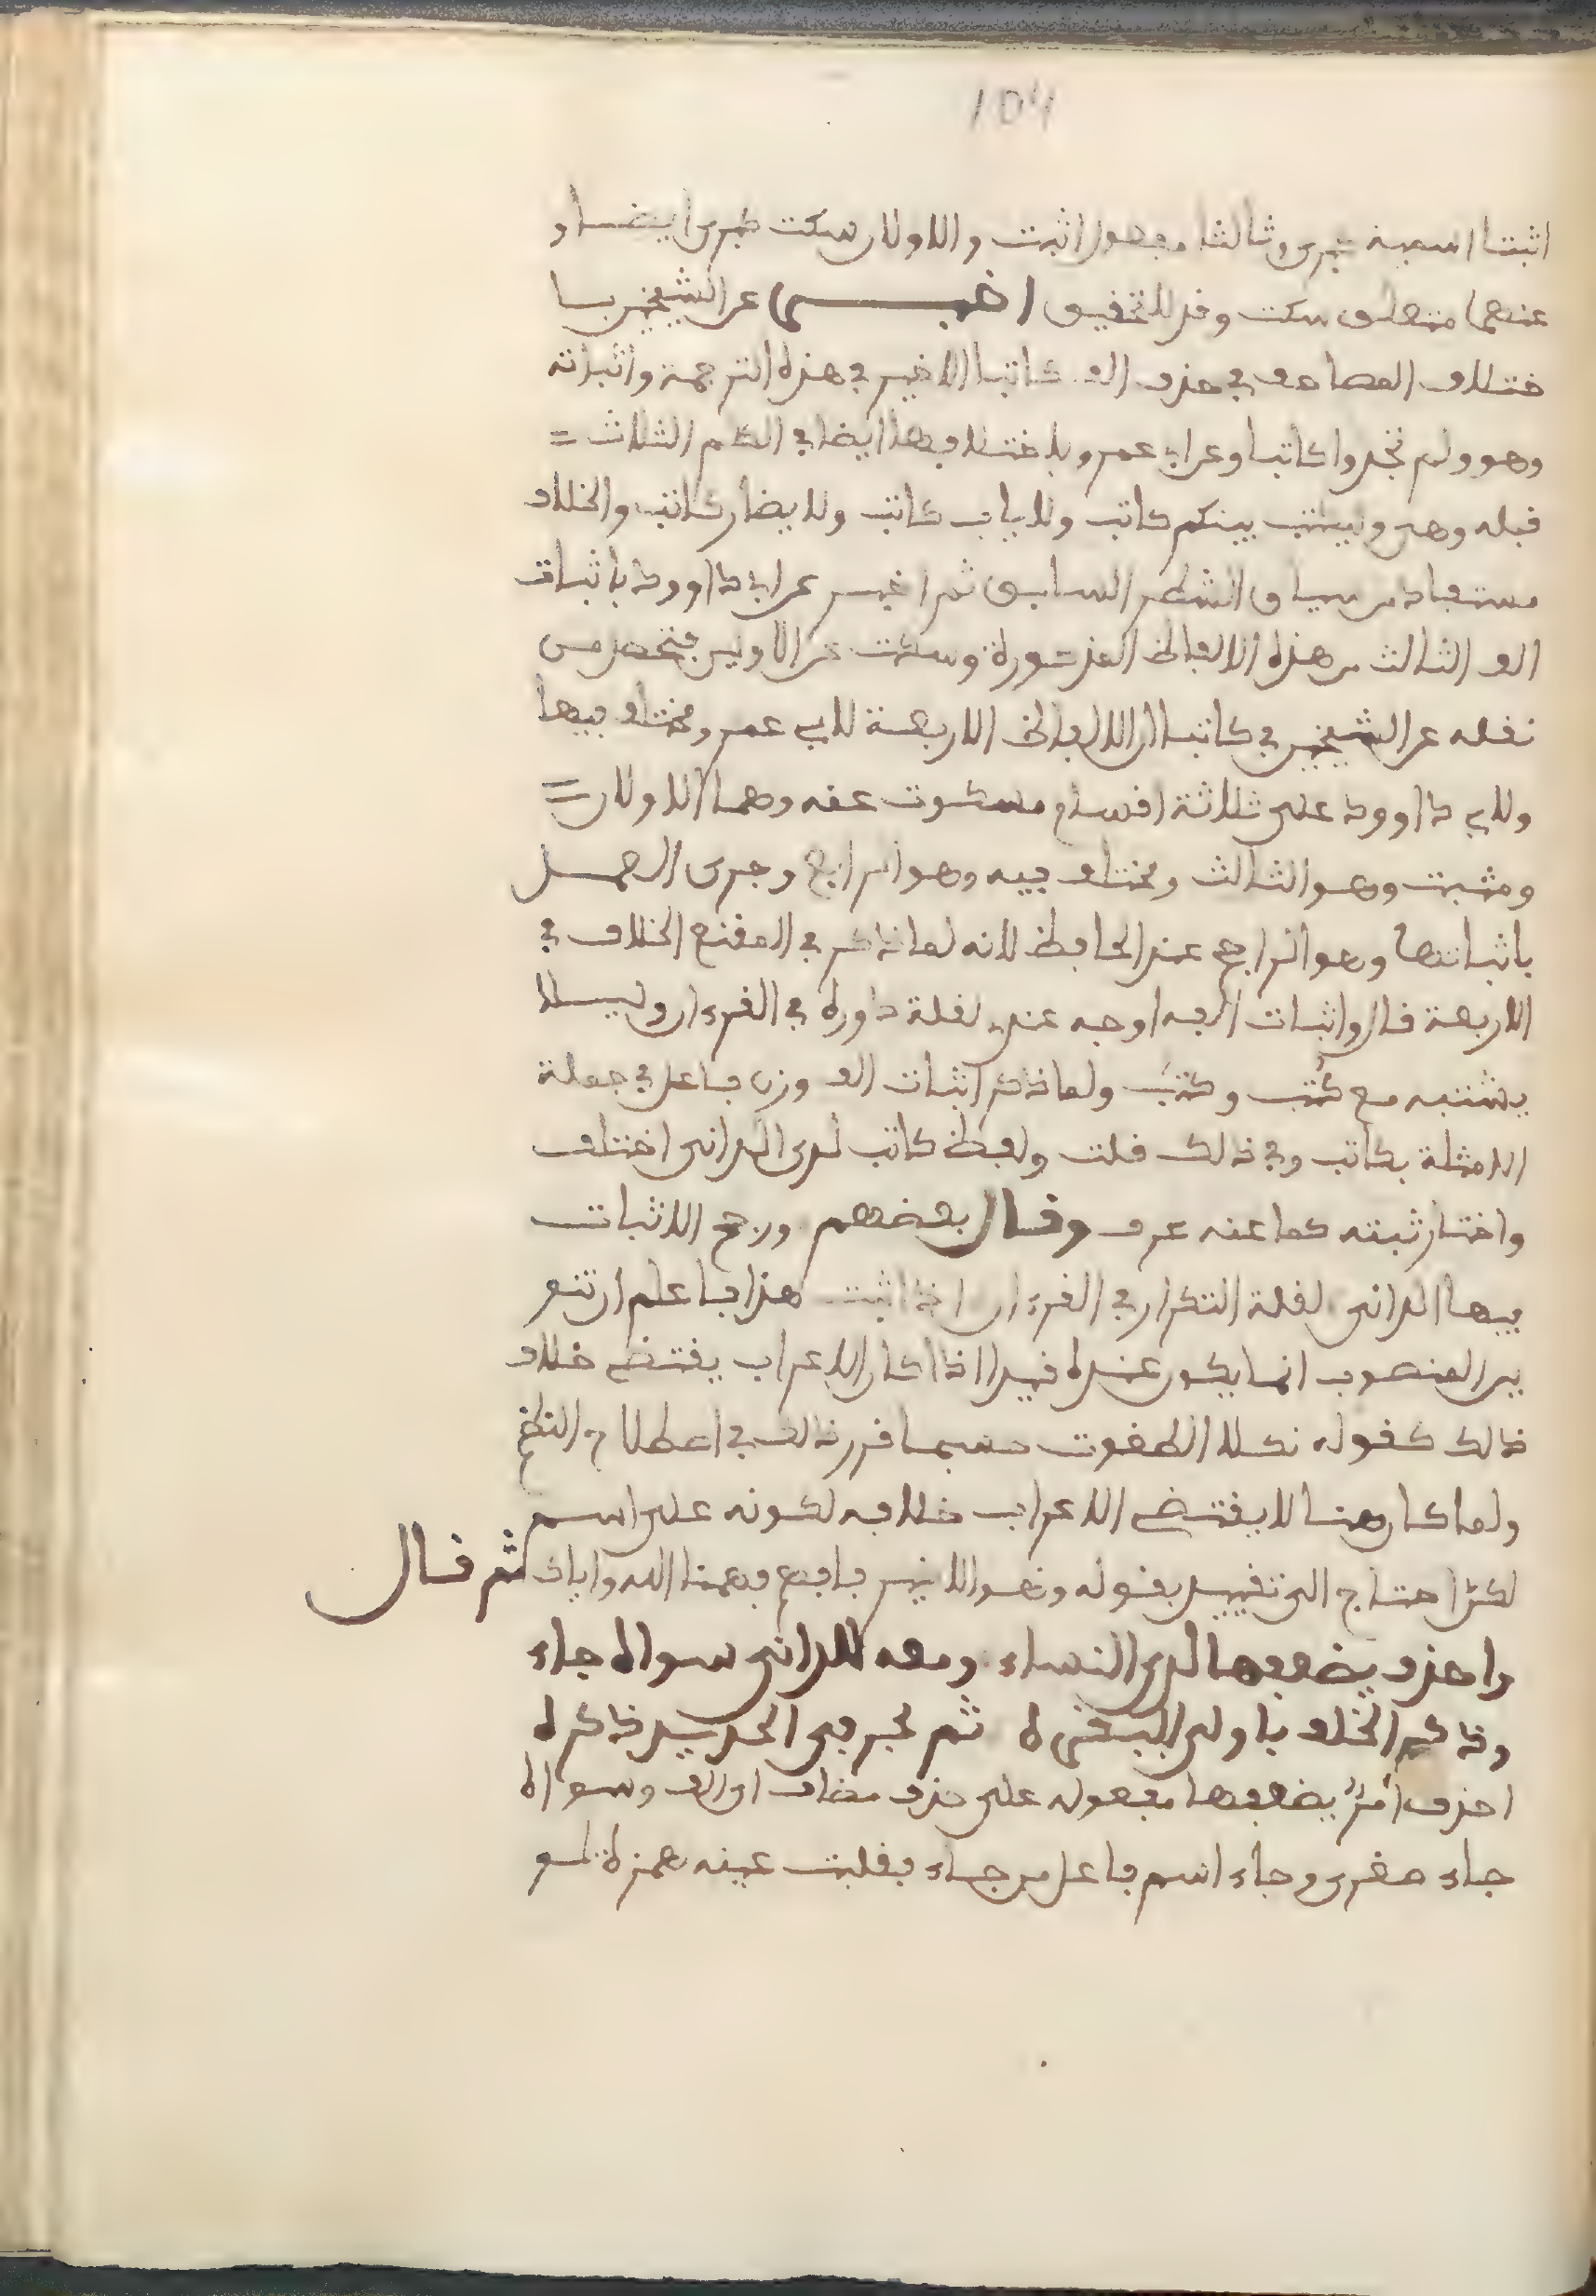 104
اثبتا اسمية خبرى وثالثا مفعول اثبت والاولان سكت خبرى ايضا و
عنهما متعلق سكت وقد للتحقيق اخبر عن الشيخين با
ختلاف المصاحف في حذف الف كاتبا الاخير في هذه الترجمة واثباته
وهو ولم تجدوا كاتبا وعن ابي عمرو باختلافها ايضا في الكلم الثلاث =
قبله وهى وليكتب بينكم كاتب ولا ياب كاتب ولا يضار كاتب والخلاف
مستفاد من سياق الشطر السابق ثم اخبر عن ابي داوود باثبات
الف الثالث من هذه الالفاظ المذكورة وسكت عن الاولين فتحصل من
نقله عن الشيخين في كاتب ان الالفاظ الاربعة لابي عمرو مختلف فيها
ولابي داوود على ثلاثة اقسام مسكوت عنه وهما الاولان =
ومثبت وهو الثالث ومختلف فيه وهو الرابع وجرى العمل
باثباتها وهو الراجح عند الحافظ لانه لما ذكر في المقنع الخلاف في
الاربعة قال واثبات الفه اوجه عندي لقلة دوره في القرءان وليلا
يشتبه مع كُتُب وكَتَبَ ولما ذكر اثبات الف وزن فاعل في جملة
الامثلة بكاتب وفي ذلك قلت ولفظ كاتب لدى الداني اختلف
واختار ثبته كما عنه عرف وقال بعضهم ورجح الاثبات
فيها الداني لقلة التكرار في القرءان اذا اثبت هذا فاعلم ان تنو
ين المنصوب انما يكون عنده قيدا اذا كان الاعراب يقتضى خلاف
ذلك كقوله نكلا الطغوت حسبما قرر ذلك في اصطلاح النظم
ولما كان هنا لا يقتضى الاعراب خلافه لكونه على اسم
لكن احتاج الى تقييد بقوله وهو الاخير فافهم فهمنا الله واياك ثم قال
واحذف يضعفها لدى النساء ومعه للداني سواه جاء
وذكر الخلف باولى البقره ثم لحرفى الحديد ذكره
احذف امر يضعفها مفعوله على حذف مضاف اى الف وسواه
جاء صغرى وجاء اسم فاعل من جاء فقلبت عينه همزة